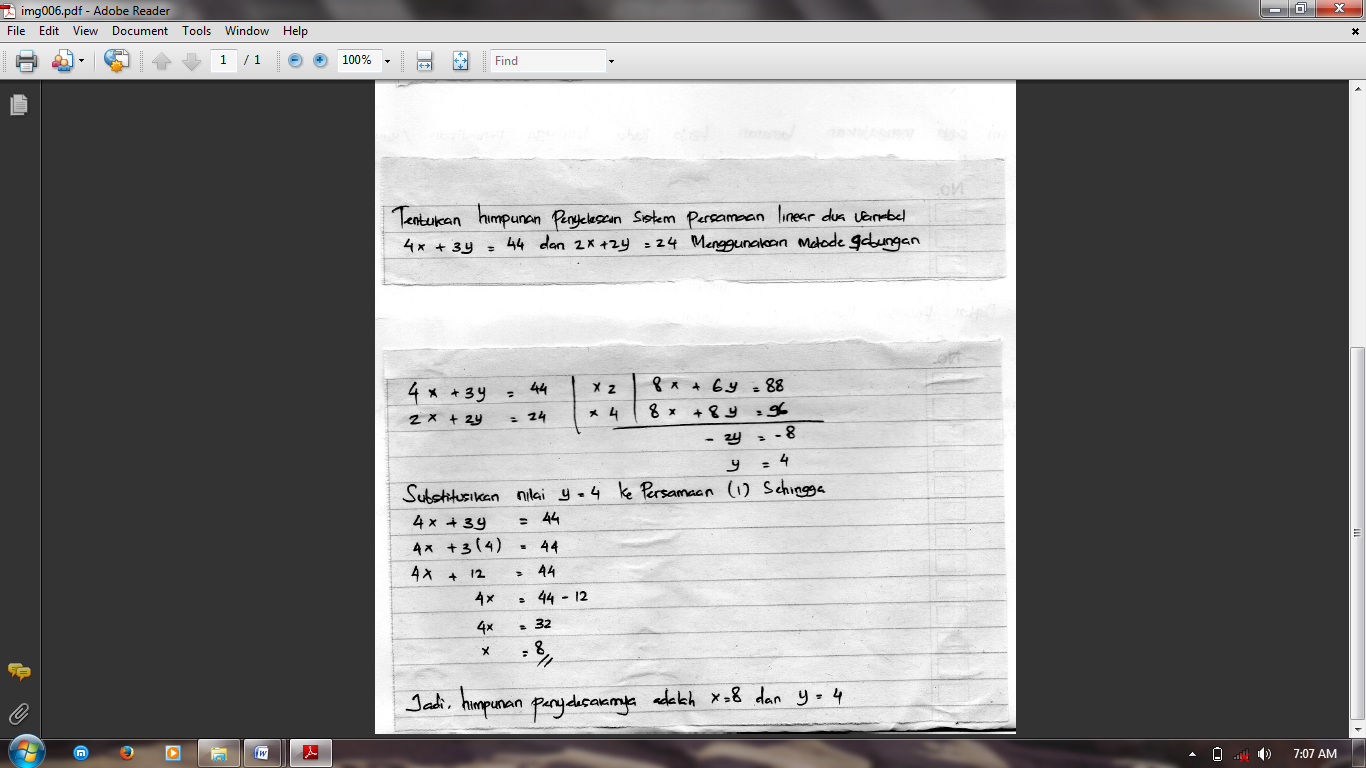 img006.pdf - Adobe Reader
File Edit View Document Tools Window Help
1 / 1 100% Find
No.
Tentukan himpunan Penyelesain Sistem Persamaan linear dua variabel
4x + 3y = 44 dan 2x + 2y = 24 Menggunakan Metode gabungan
No.
4x + 3y = 44 | x 2 | 8x + 6y = 88
2x + 2y = 24 | x 4 | 8x + 8y = 96
- 2y = -8
y = 4
Substitusikan nilai y = 4 ke Persamaan (1) Sehingga
4x + 3y = 44
4x + 3(4) = 44
4x + 12 = 44
4x = 44 - 12
4x = 32
x = 8
Jadi, himpunan penyelesaiannya adalah x=8 dan y = 4
7:07 AM